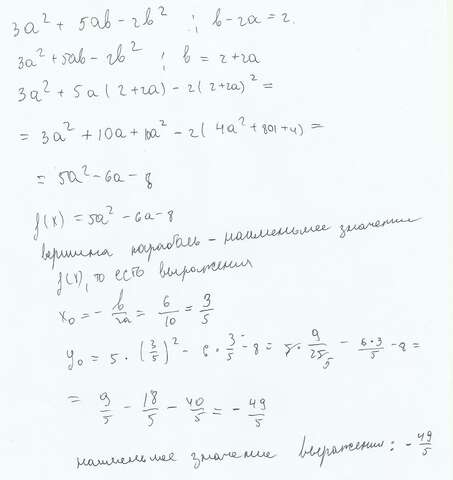 3a² + 5ab - 2b² ; b - 2a = 2.
3a² + 5ab - 2b² ; b = 2 + 2a
3a² + 5a(2+2a) - 2(2+2a)² =
= 3a² + 10a + 10a² - 2(4a² + 8a + 4) =
= 5a² - 6a - 8
f(x) = 5a² - 6a - 8
вершина параболы - наименьшее значение
f(x), то есть выражения
x₀ = - b/2a = 6/10 = 3/5
y₀ = 5 · (3/5)² - 6 · 3/5 - 8 = 5 · 9/25 - 6·3/5 - 8 =
= 9/5 - 18/5 - 40/5 = - 49/5
наименьшее значение выражения: - 49/5